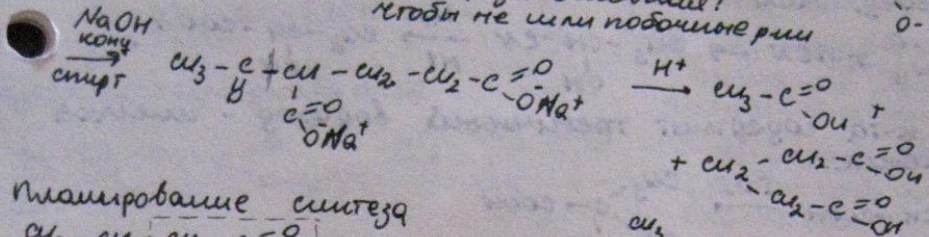 чтобы не шли побочные р-ии
O-
NaOH
конц
спирт
CH3 - C - CH - CH2 - CH2 - C =O
O-Na+
H+
CH3 - C =O
OH +
C =O
O-Na+
+ CH2 - CH2 - C =O
OH
CH2 - C =O
OH
Планирование синтеза
CH3